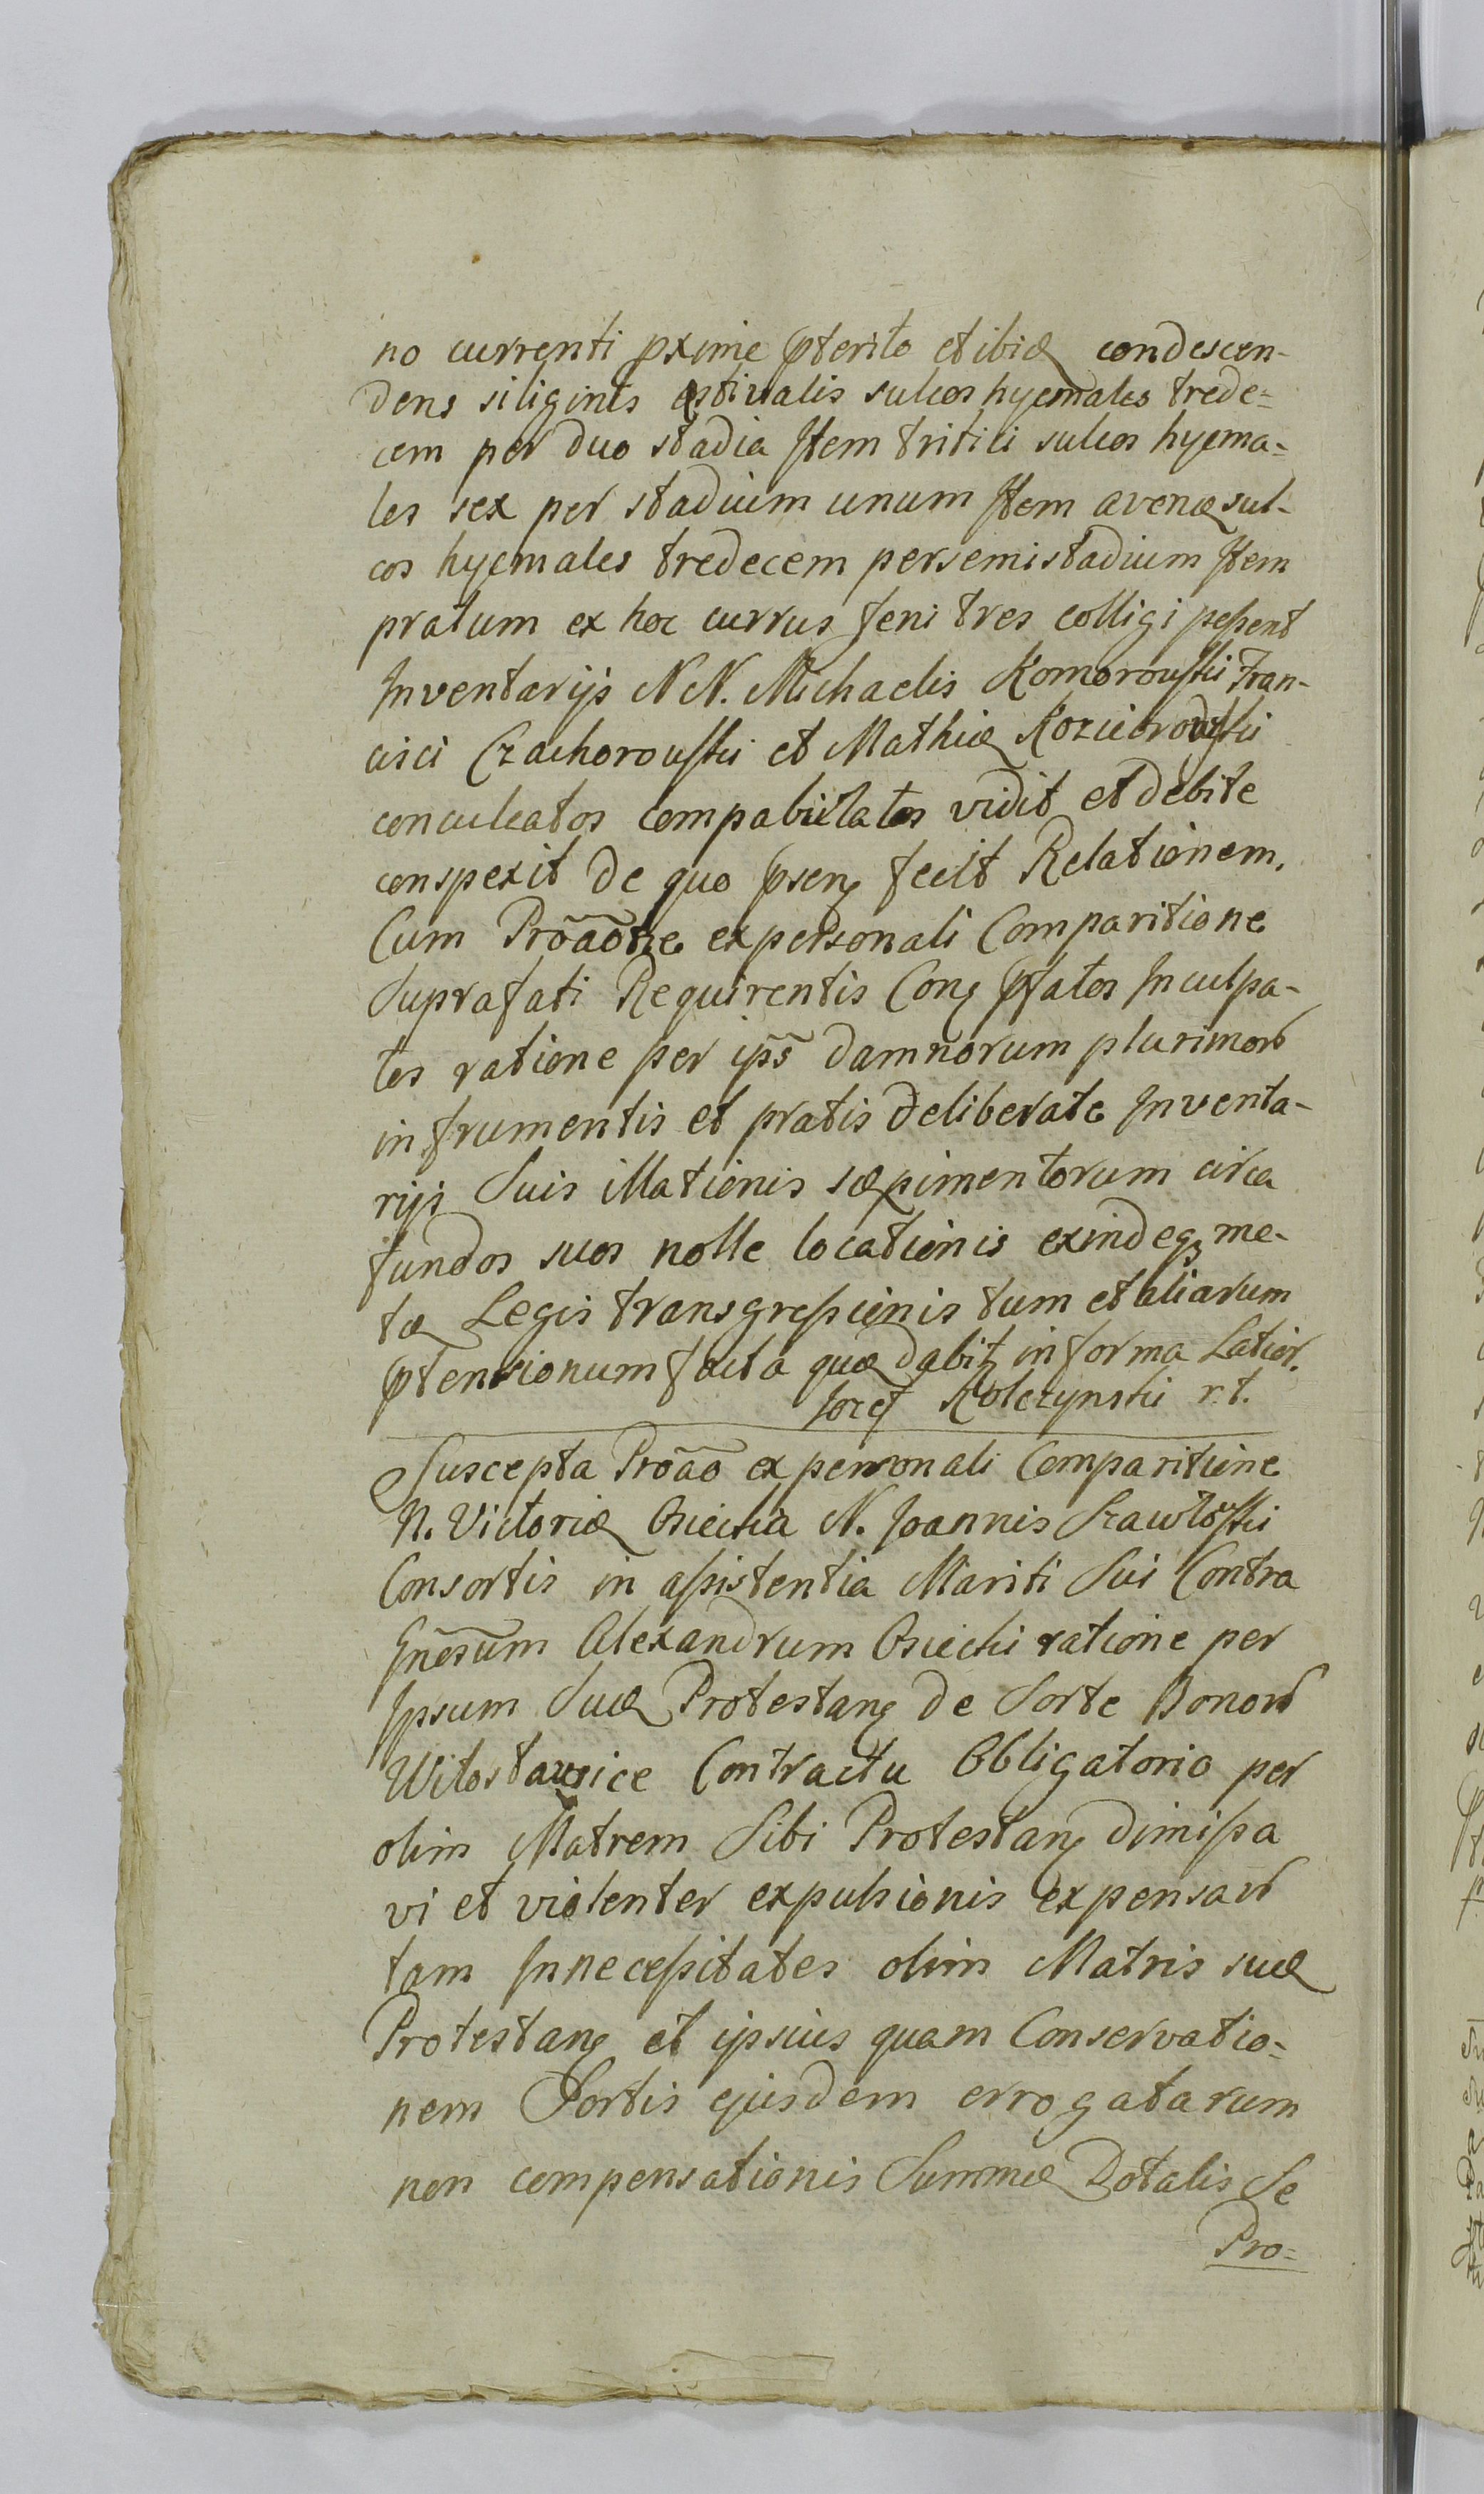 no currenti pxime pterito et ibiq condescen-
dens siliginis æstivalis sulcos hyemales trede=
cem per duo stadia Item tritici sulcos hyema=
les sex per stadium unum Item avenæ sul-
cos hyemales tredecem per semistadium Item
pratum ex hoc currus feni tres colligi possent
Inventarijs NN. Michaelis Komorowskii Fran-
cisci Czachorowskii et Mathiæ Kozierowskii
conculcatos compabulatos vidit et debite
conspexit de quo psens fecit Relationem.
Cum Proãõne ex personali Comparitione
Suprafati Requirentis Cons pfatos Inculpa-
tos ratione per ips̃ damnorum plurimor
in frumentis et pratis deliberate Inventa-
rijs Suis illationis sæpimentorum circa
fundos suos nolle locationis exindeq me-
tæ Legis transgressionis tum et aliarum
ptensionum facta quæ dabit in forma Latior.
Jozef Kolczynskii r.t.
Suscepta Proãõ ex personali Comparitione
N. Victoriæ Osiecka N. Joannis Szawłowskii
Consortis in assistentia Mariti Sui Contra
Gnẽsum Alexandrum Osiecki ratione per
Ipsum Suæ Protestans de Sorte Bonor
Witostawice Contractu Obligatorio per
olim Matrem Sibi Protestans dimissa
vi et violenter expulsionis expensar
tam In necessitates olim Matris suæ
Protestans et ipsius quam Conservatio=
nem Sortis ejusdem errogatarum
non compensationis Summæ Dotalis Se
Pro=